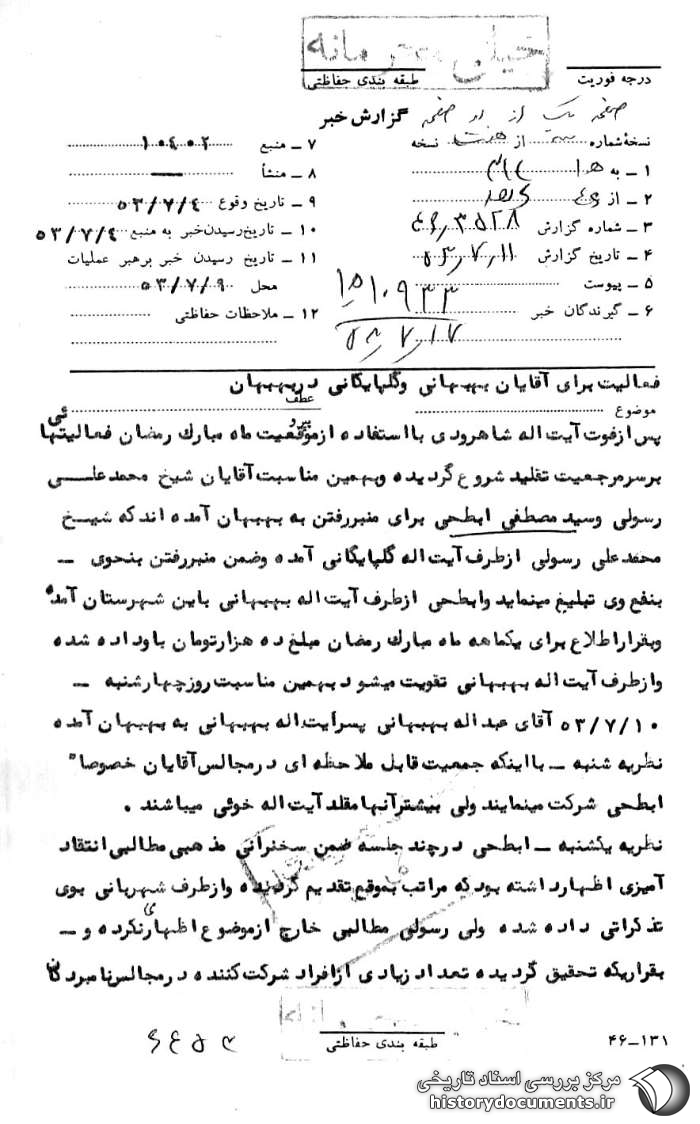 خیلی محرمانه
درجه فوریت
طبقه بندی حفاظتی
صفحه یک از دو صفحه
گزارش خبر
نسخهٔ شماره سه از هفت نسخه
۱ – به ه‍ ۱
۲ – از
۳ – شماره گزارش
۴ – تاریخ گزارش ۵۳٫۷٫۱۱
۵ – پیوست
۶ – گیرندگان خبر
۷ – منبع ۱۰۴۰۲
۸ – منشأ
۹ – تاریخ وقوع ۵۳/۷/۴
۱۰ – تاریخ رسیدن خبر به منبع ۵۳/۷/۴
۱۱ – تاریخ رسیدن خبر برهبر عملیات
محل ۵۳/۷/۹
۱۲ – ملاحظات حفاظتی
۱۵۱۰۹۳۳
فعالیت برای آقایان بهبهانی وگلپایگانی دربهبهان
موضوع
عطف
پیرو
پس ازفوت آیت اله شاهرودی بااستفاده ازموقعیت ماه مبارك رمضان فعالیتهائی
برسرمرجعیت تقلید شروع گردیده وبهمین مناسبت آقایان شیخ محمدعلی
رسولی وسیدمصطفی ابطحی برای منبررفتن به بهبهان آمده اندکه شیخ
محمدعلی رسولی ازطرف آیت اله گلپایگانی آمده وضمن منبررفتن بنحوی –
بنفع وی تبلیغ مینماید وابطحی ازطرف آیت اله بهبهانی باین شهرستان آمده
وبقراراطلاع برای یکماهه ماه مبارك رمضان مبلغ ده هزارتومان باوداده شده
وازطرف آیت اله بهبهانی تقویت میشود بهمین مناسبت روزچهارشنبه –
۵۳/۷/۱۰ آقای عبداله بهبهانی پسرآیت اله بهبهانی به بهبهان آمده
نظریه شنبه – بااینکه جمعیت قابل ملاحظه ای درمجالس آقایان خصوصا"
ابطحی شرکت مینمایند ولی بیشترآنها مقلد آیت اله خوئی میباشند .
نظریه یکشنبه – ابطحی درچند جلسه ضمن سخنرانی مذهبی مطالبی انتقاد
آمیزی اظهارداشته بودکه مراتب بموقع تقدیم گردیده وازطرف شهربانی بوی
تذکراتی داده شده ولی رسولی مطالبی خارج ازموضوع اظهارنکرده و –
بقراریکه تحقیق گردیده تعداد زیادی ازافراد شرکت کننده درمجالس نامبردگان
طبقه بندی حفاظتی
۴۶–۱۳۱
مرکز بررسی اسناد تاریخی
historydocuments.ir